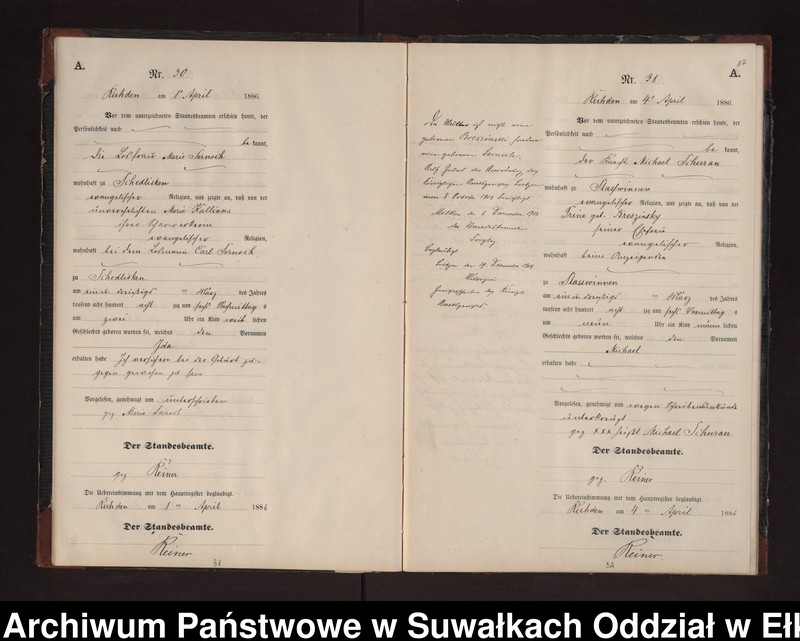 A.
Nr. 30
Rübden am 1ᵗ April 1886.
Vor dem unterzeichneten Standesbeamten erschien heute, der
Persönlichkeit nach
be kannt,
Die Losfrau Marie Sarnoch
wohnhaft zu Schedlisken
evangelischer Religion, und zeigte an, daß von der
unverehelichten Marie
ihrer
evangelischer Religion,
wohnhaft bei dem Losmann Carl Sarnoch
zu Schedlisken
am ein und dreißigsten März des Jahres
tausend acht hundert acht zig und sechs Nachmittag s
um zwei Uhr ein Kind weib lichen
Geschlechts geboren worden sei, welches den Vornamen
Ida
erhalten habe Ich versichere bei der Geburt zu-
gegen gewesen zu sein
Vorgelesen, genehmigt und unterschrieben
gez Marie Sarnoch
Der Standesbeamte.
gez Reiner
Die Uebereinstimmung mit dem Hauptregister beglaubigt.
am 1 ten April 1886
Der Standesbeamte.
Reiner
31
17
A.
Nr. 31
am 4ᵗ April 1886.
Vor dem unterzeichneten Standesbeamten erschien heute, der
Persönlichkeit nach
be kannt,
der Knecht, Michael Schuran
wohnhaft zu Staswinnen
evangelischer Religion, und zeigte an, daß von der
Trine geb. Breszinsky
seiner Ehefrau
evangelischer Religion,
wohnhaft beim Anzeigenden
zu Staswinnen
am ein und dreißigsten März des Jahres
tausend acht hundert acht zig und sechs Vormittag s
um neun Uhr ein Kind männ lichen
Geschlechts geboren worden sei, welches den Vornamen
Michael
erhalten habe
Vorgelesen, genehmigt und wegen Schreibensunkunde
unterkreuzt
gez xxx heißt Michael Schuran
Der Standesbeamte.
gez. Reiner
Die Uebereinstimmung mit dem Hauptregister beglaubigt.
am 4 ten April 1886
Der Standesbeamte.
Reiner
32
Die Mutter ist nicht eine
geborene Breszinski sondern
eine geborene
Auf Grund der Anordnung des
Königlichen Amtsgerichts Loetzen
vom 3 1904
den 5 Dezember 1904
der Standesbeamte
Beglaubigt
Loetzen den 17. Dezember 1904
Gerichtsschreiber des Königl.
Amtsgerichts
Archiwum Państwowe w Suwałkach Oddział w Eł